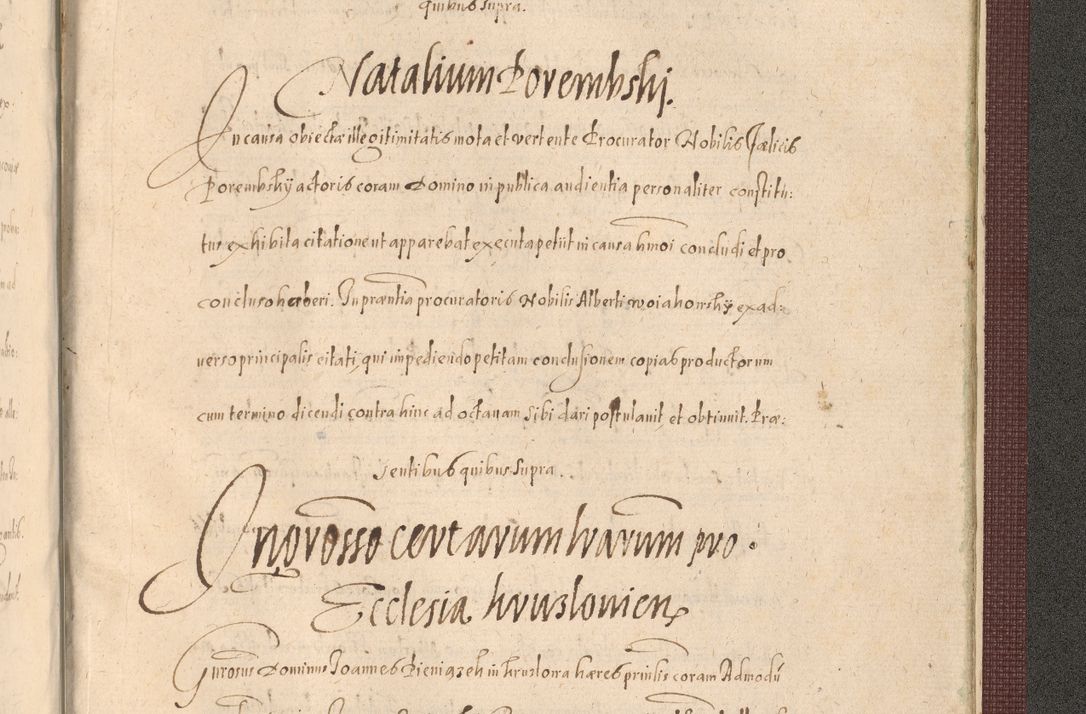 quibus supra.
Natalium Porembskij.
In causa obiectæ illegitimitatis mota et vertente Procurator Nobilis Fælicis
Porembskÿ actoris coram Domino in publica audientia personaliter constitu:
tus exhibita citatione ut apparebat executa petiit in causa hmoi concludi et pro
concluso haberi. In præntia procuratoris Nobilis Alberti Woiakowskÿ ex ad:
verso principalis citati, qui impediendo petitam conclusionem copias productorum
cum termino dicendi contra hinc ad octauam sibi dari postulauit et obtinuit. Præ:
sentibus quibus supra.
Ingrosso certarum lrarum pro
Ecclesia hruslouien
Gnrosus Dominus Joannes Pieniązek in hruslowa hæres prinlis coram Admodū